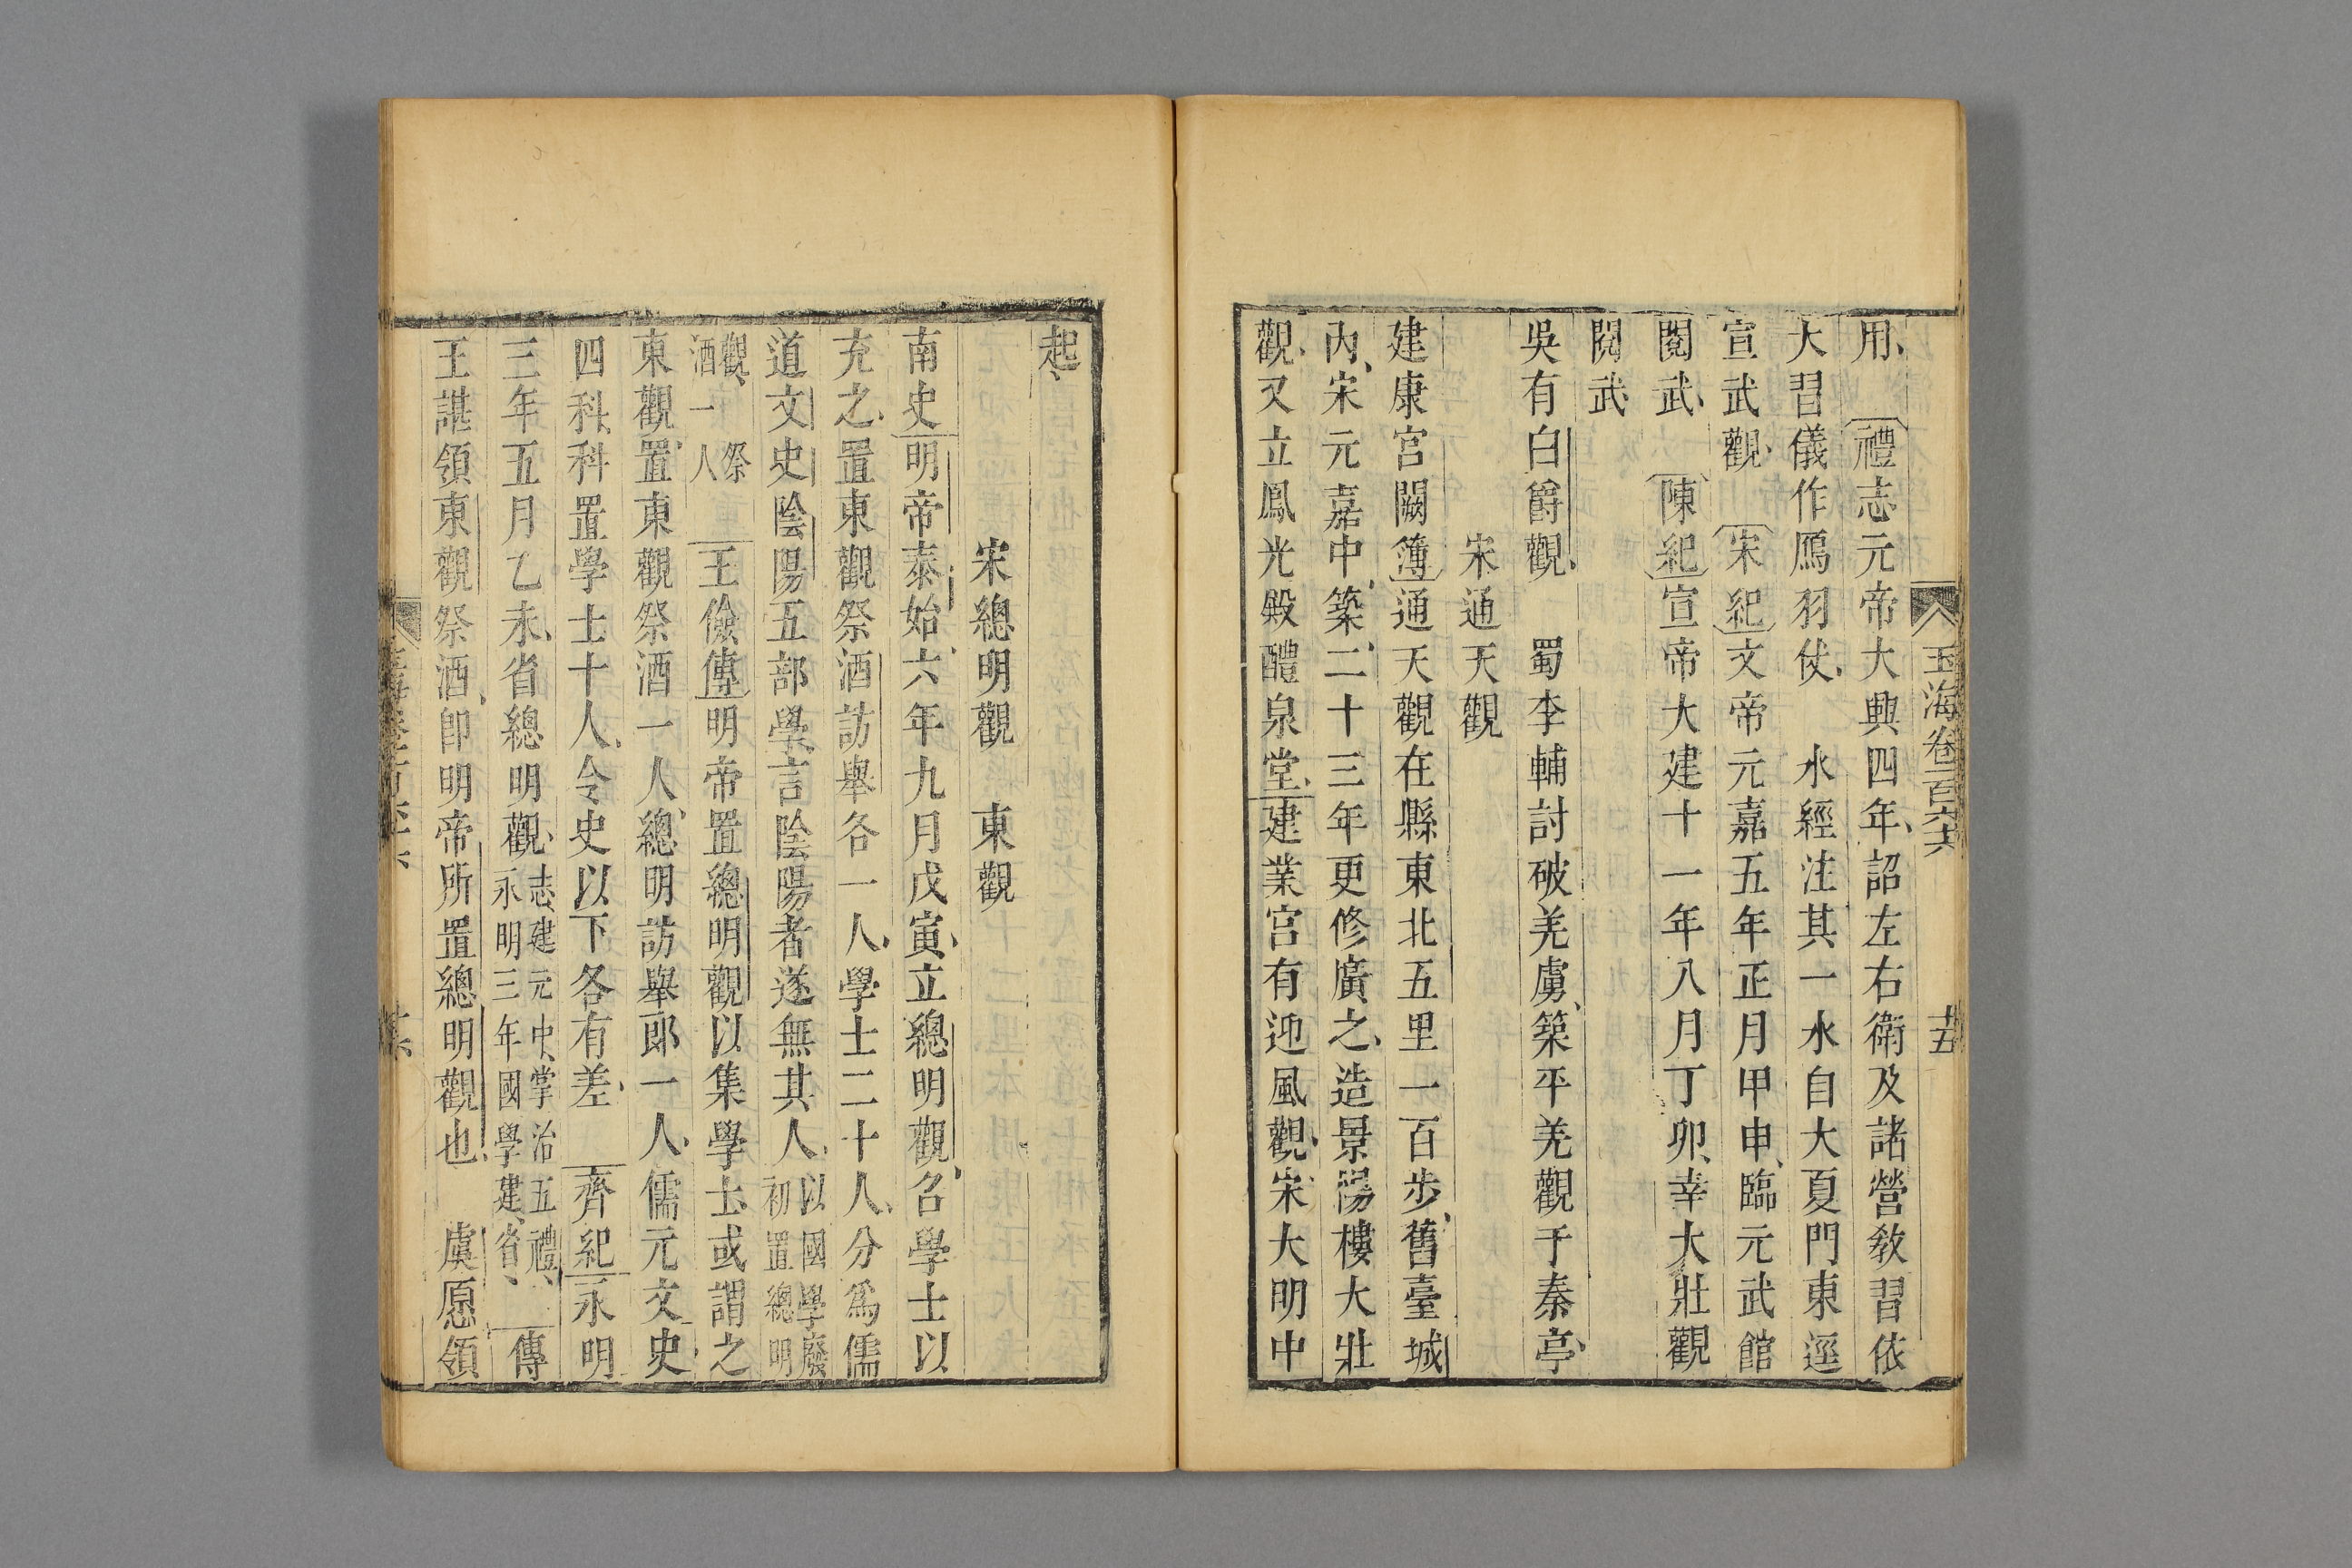 玉海卷一百六十六
十五
用禮志元帝大興四年詔左右衛及諸營教習依
大習儀作鴈羽仗 水經注其一水自大夏門東逕
宣武觀 宋紀文帝元嘉五年正月甲申臨元武館
閱武 陳紀宣帝大建十一年八月丁卯幸大壯觀
閱武
吳有白爵觀 蜀李輔討破羌虜築平羌觀于秦亭
宋通天觀
建康宮闕簿通天觀在縣東北五里一百步舊臺城
內宋元嘉中築二十三年更修廣之造景陽樓大壯
觀又立鳳光殿醴泉堂建業宮有迎風觀宋大明中
起
宋總明觀 東觀
南史明帝泰始六年九月戊寅立總明觀召學士以
充之置東觀祭酒訪舉各一人學士二十人分爲儒
道文史陰陽五部學言陰陽者遂無其人以國學廢初置總明
觀祭酒一人 王儉傳明帝置總明觀以集學士或謂之
東觀置東觀祭酒一人總明訪舉郎一人儒元文史
四科科置學士十人令史以下各有差 齊紀永明
三年五月乙未省總明觀志建元中掌治五禮永明三年國學建省 傳
王諶領東觀祭酒卽明帝所置總明觀也 虞愿領